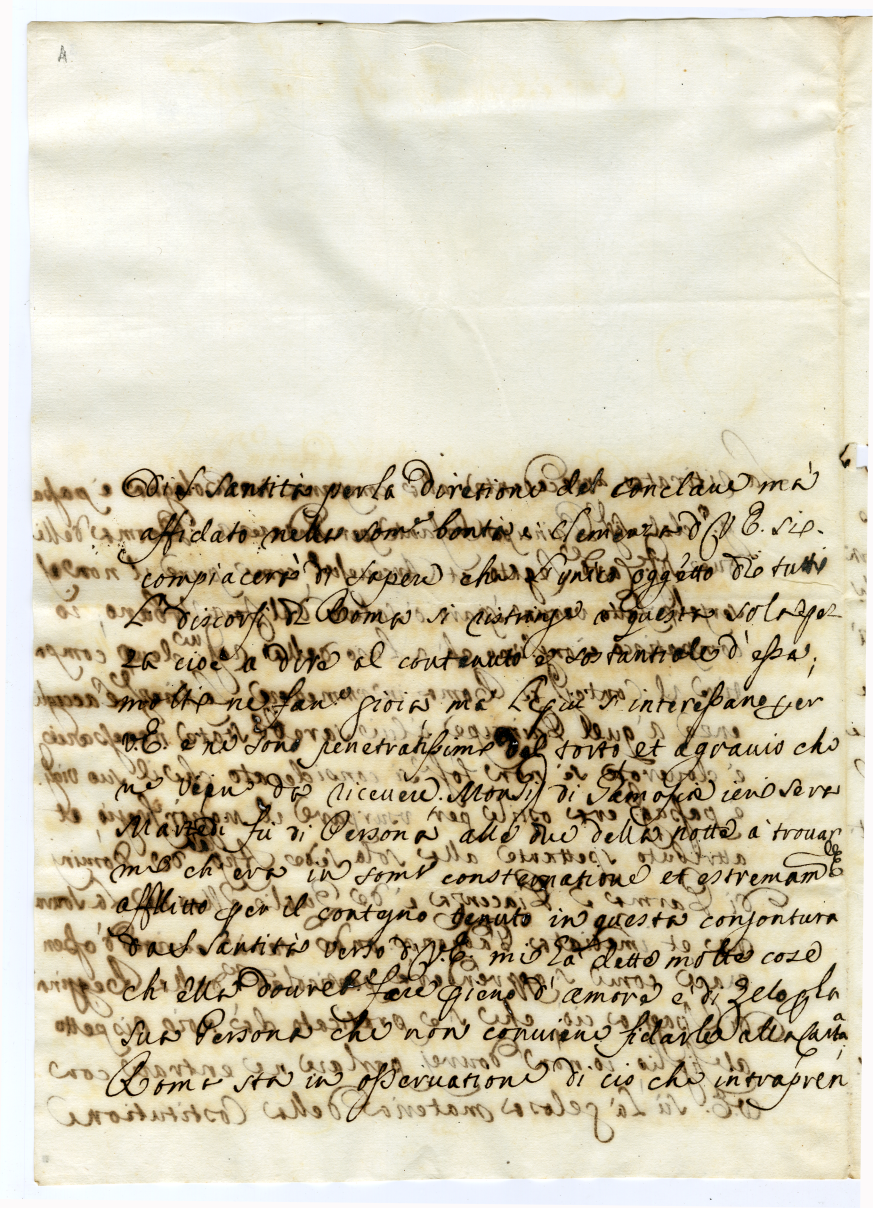 A
Di S. Santità per la Diretione del conclaue mà
affidato nella som.ª bontà e clemenza d V.E. si
compiacerà di sapere che oggetto di tutti
Li discorsi di Roma si ristringe a questa sola
za cioè a dire al contenuto e sostantiale d'essa,
molti ne fan gioia ma Le più s'interessane per
V.E. e ne sono penetratissime del torto et agrauio che
ne vien da riceuere. Mons.r di ieri sera
Martedi fù di Persona alle due della notte à trouar
me ch'era in som.ª consternatione et estremam.te
afflitto per il contegno tenuto in questa conjontura
da S. Santità verso di V.E. mi hà detto molte cose
ch'ella dourebbe piene d'amore e di Zelo p la
sua Persona che non conuiene fidarle alla Carta,
Roma sta in osseruatione di cio che intrapren